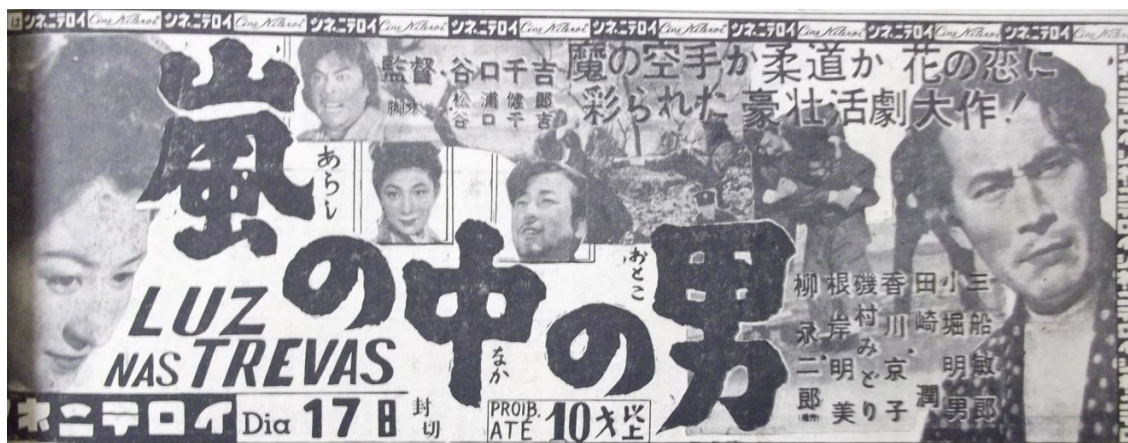 シネ.ニテロイ Cine Niterói シネ.ニテロイ Cine Niterói シネ.ニテロイ Cine Niterói シネ.ニテロイ Cine Niterói シネ.ニテロイ Cine Niterói シネ.ニテロイ Cine Niterói シネ.ニテロイ Cine Niterói シネ.ニテロイ Cine
魔の空手か柔道か 花の恋に
彩られた 豪壮活劇大作!
監督・谷口千吉
脚本 松浦健郎
谷口千吉
嵐の中の男
あらし
なか
おとこ
LUZ
NAS TREVAS
三船敏郎
小堀明男
田崎潤
香川・京子
磯村みどり
根岸明美
柳永二郎
ネニテロイ Dia 17日 封切
PROIB.
ATÉ 10才以上